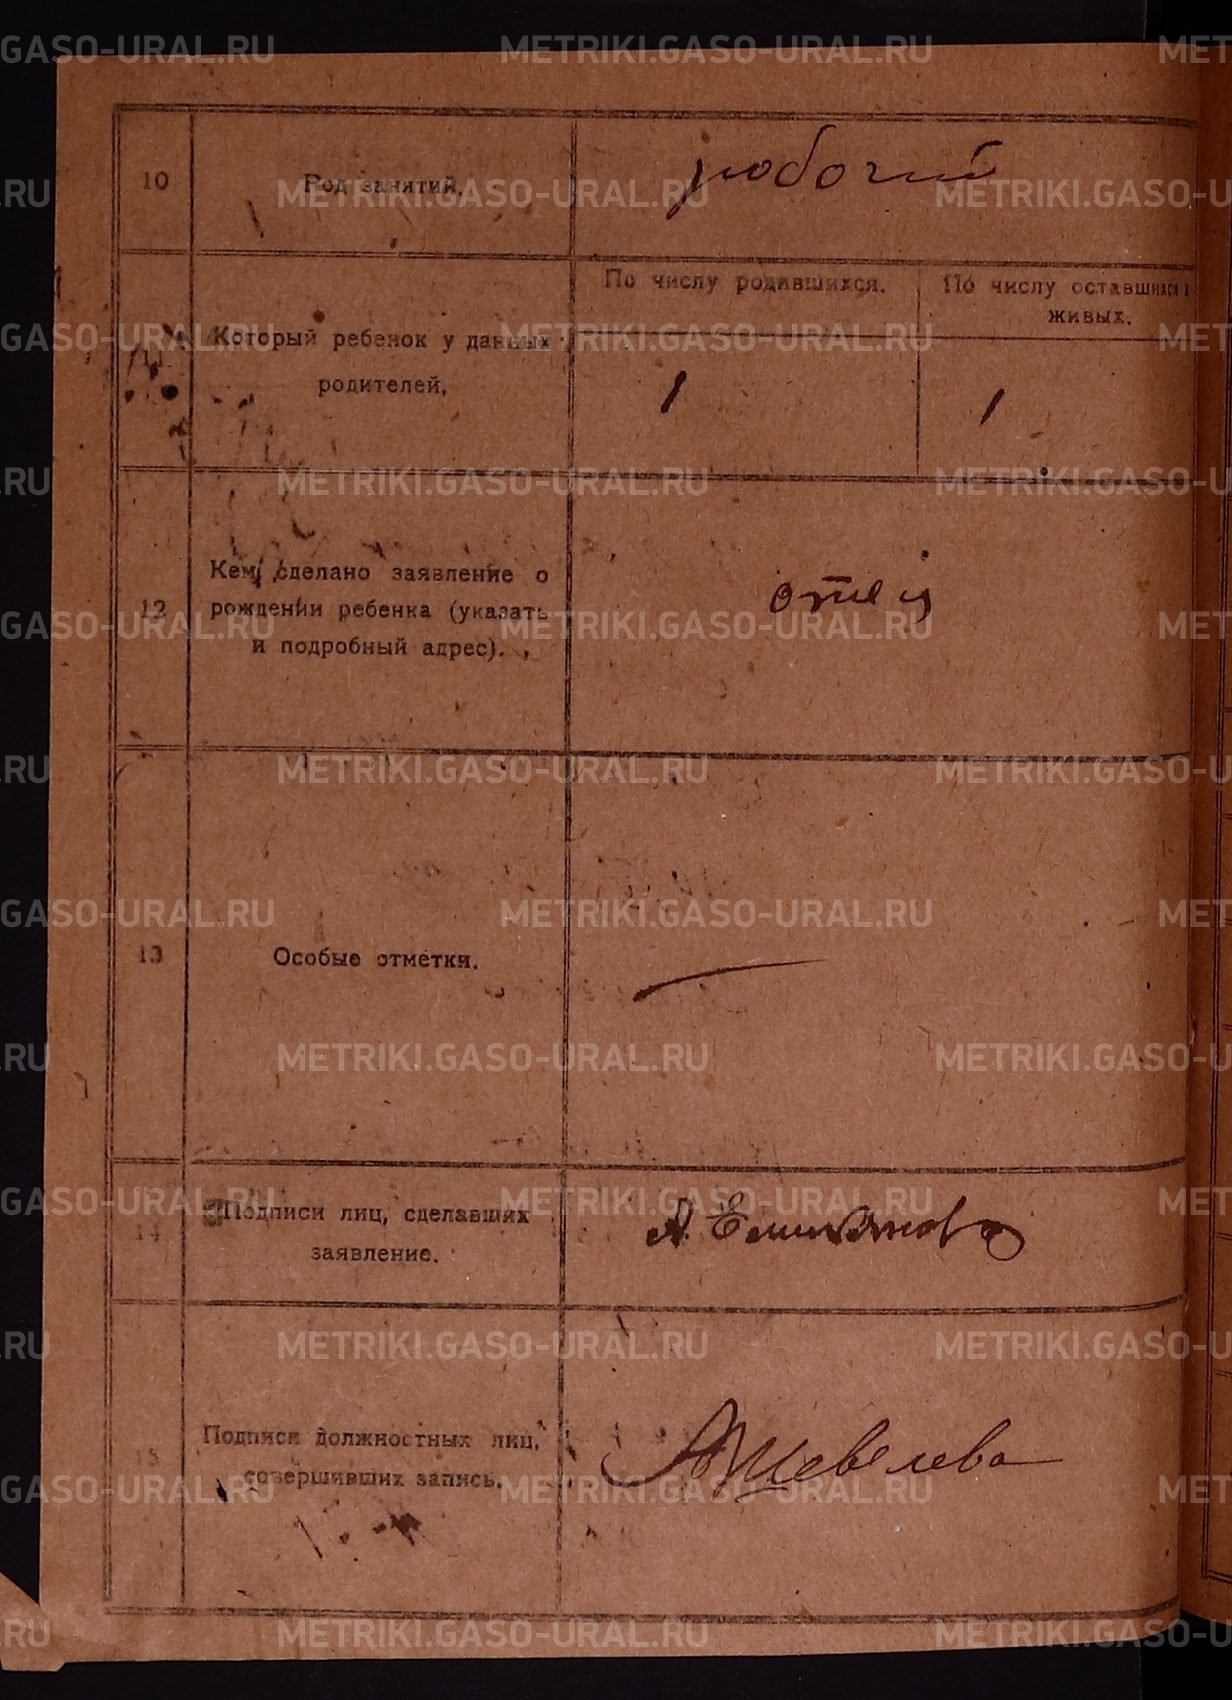 METRIKI.GASO-URAL.RU
10
Род занятий.
рабочий
11
Который ребенок у данных
родителей.
По числу родившихся.
По числу оставшихся
живых.
1
1
12
Кем сделано заявление о
рождении ребенка (указать
и подробный адрес).
отец
13
Особые отметки.
14
Подписи лиц, сделавших
заявление.
А.
15
Подписи должностных лиц,
совершивших запись.
АШевелева